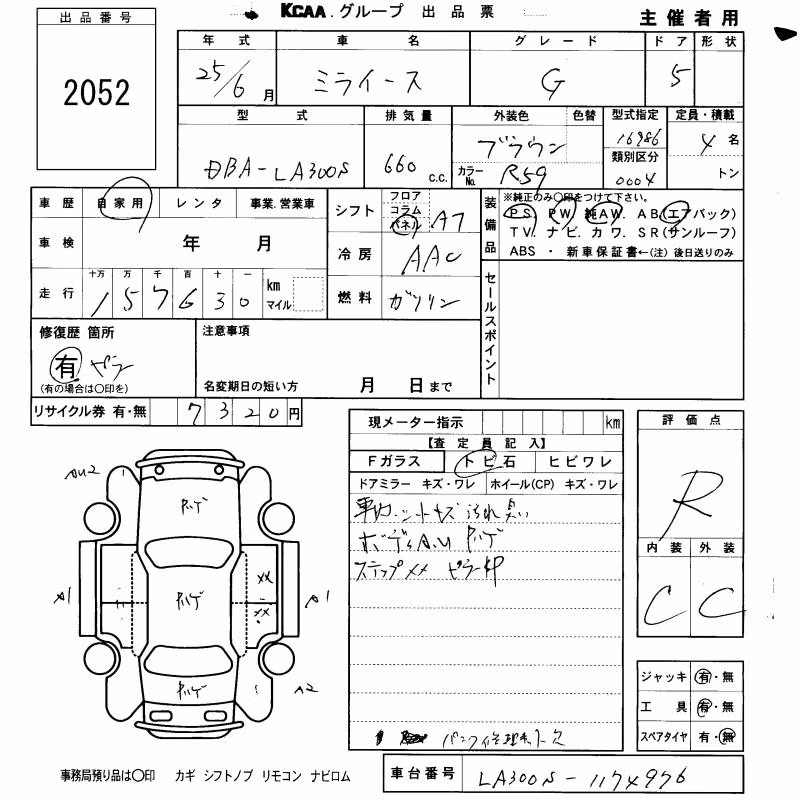 KCAA.グループ 出品票
主催者用
出品番号
2052
年式 車名 グレード ドア 形状
25/6月 ミライース G 5
型式 排気量 外装色 色替 型式指定 定員・積載
DBA-LA300S 660 c.c. ブラウン 16986 4名
カラーNo. R59 類別区分 0004 トン
車歴 自家用 レンタ 事業.営業車
シフト フロア コラム パネル AT
装備品 ※純正のみ○印をつけて下さい。
PS PW 純AW. AB(エアバック)
TV. ナビ. カワ. SR(サンルーフ)
ABS ・ 新車保証書←(注) 後日送りのみ
車検 年 月
冷房 AAC
走行 十万 万 千 百 十 一 km マイル
1 5 7 6 3 0
燃料 ガソリン
セールスポイント
修復歴 箇所
有 ピラ
(有の場合は○印を)
注意事項
名変期日の短い方 月 日まで
リサイクル券 有・無 7320円
現メーター指示 km
評価点
【査定員記入】
Fガラス トビ石 ヒビワレ
ドアミラー キズ・ワレ ホイール(CP) キズ・ワレ
R
車内シートキズ 汚れ 臭い
ボディAU
ステップXX ピラーP
内装 外装
C C
AU2
A1
XX
XX
A1
A2
ジャッキ 有・無
工具 有・無
スペアタイヤ 有・無
パンク修理キット欠
事務局預り品は○印 カギ シフトノブ リモコン ナビロム
車台番号 LA300S-1174976